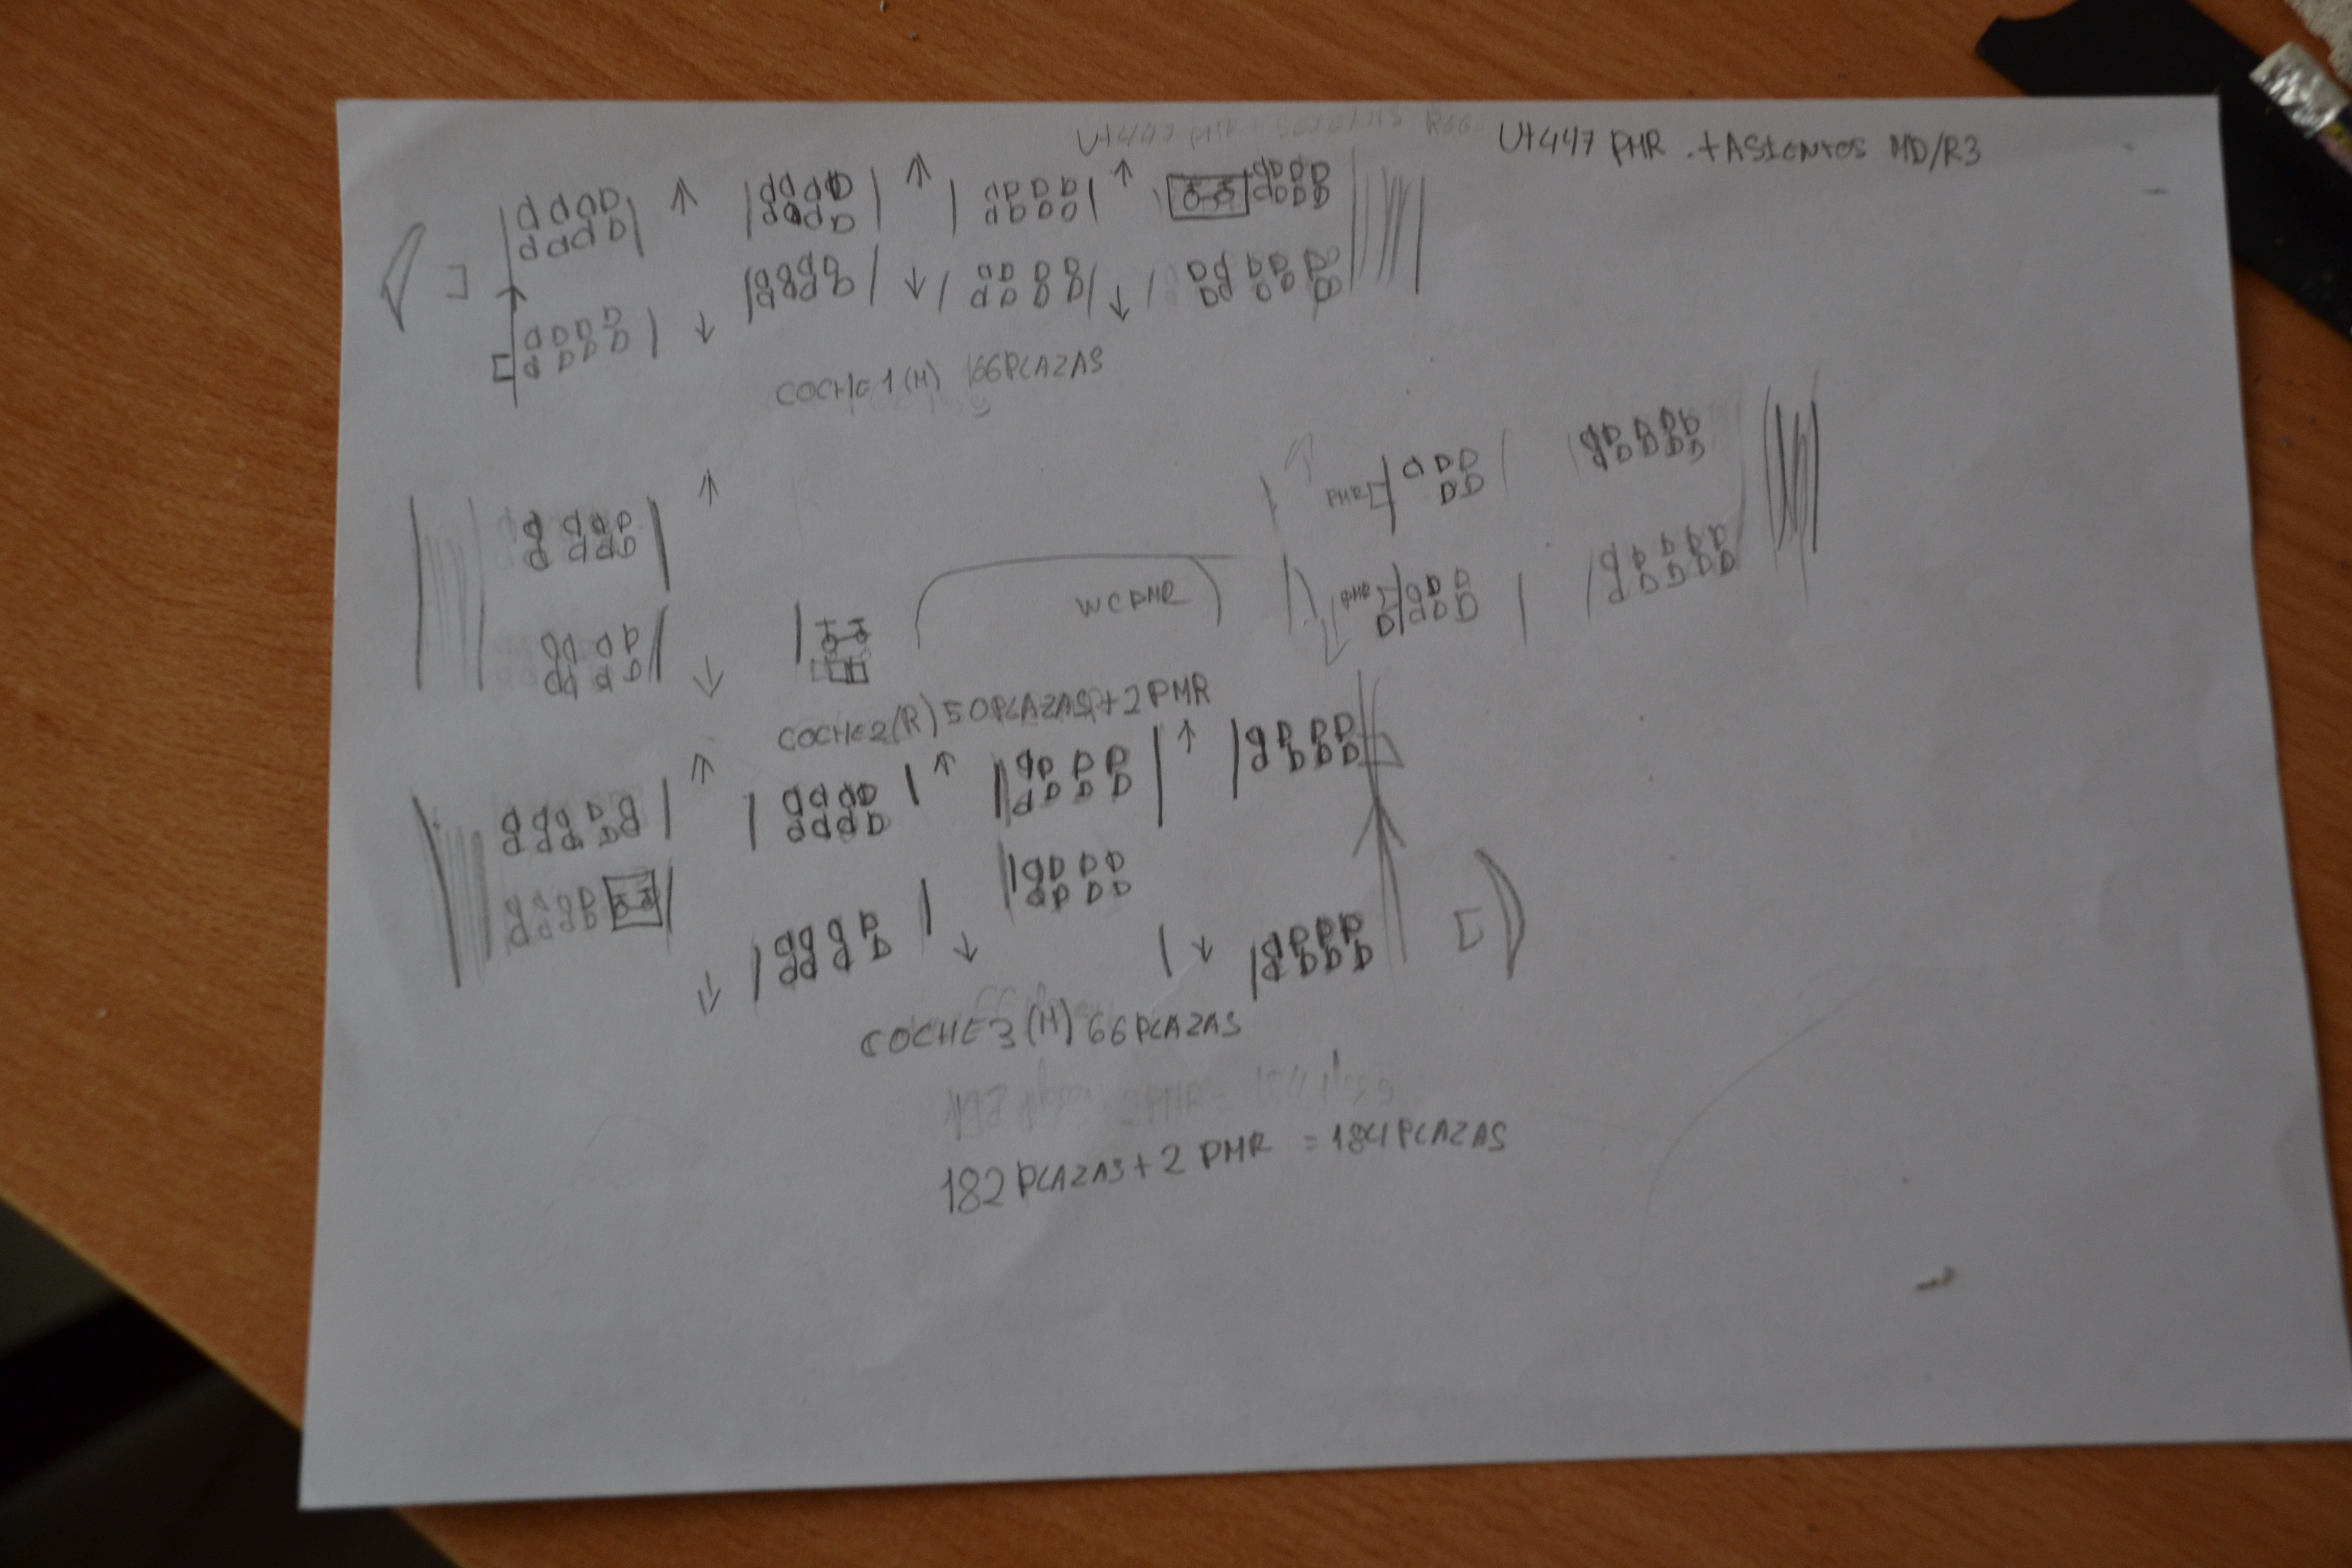 UT447 PMR + ASIENTOS MD/R3
COCHE 1 (M) 66 PLAZAS
PMR
PMR
WC PMR
COCHE 2 (R) 50 PLAZAS + 2 PMR
COCHE 3 (M) 66 PLAZAS
182 PLAZAS + 2 PMR = 184 PLAZAS